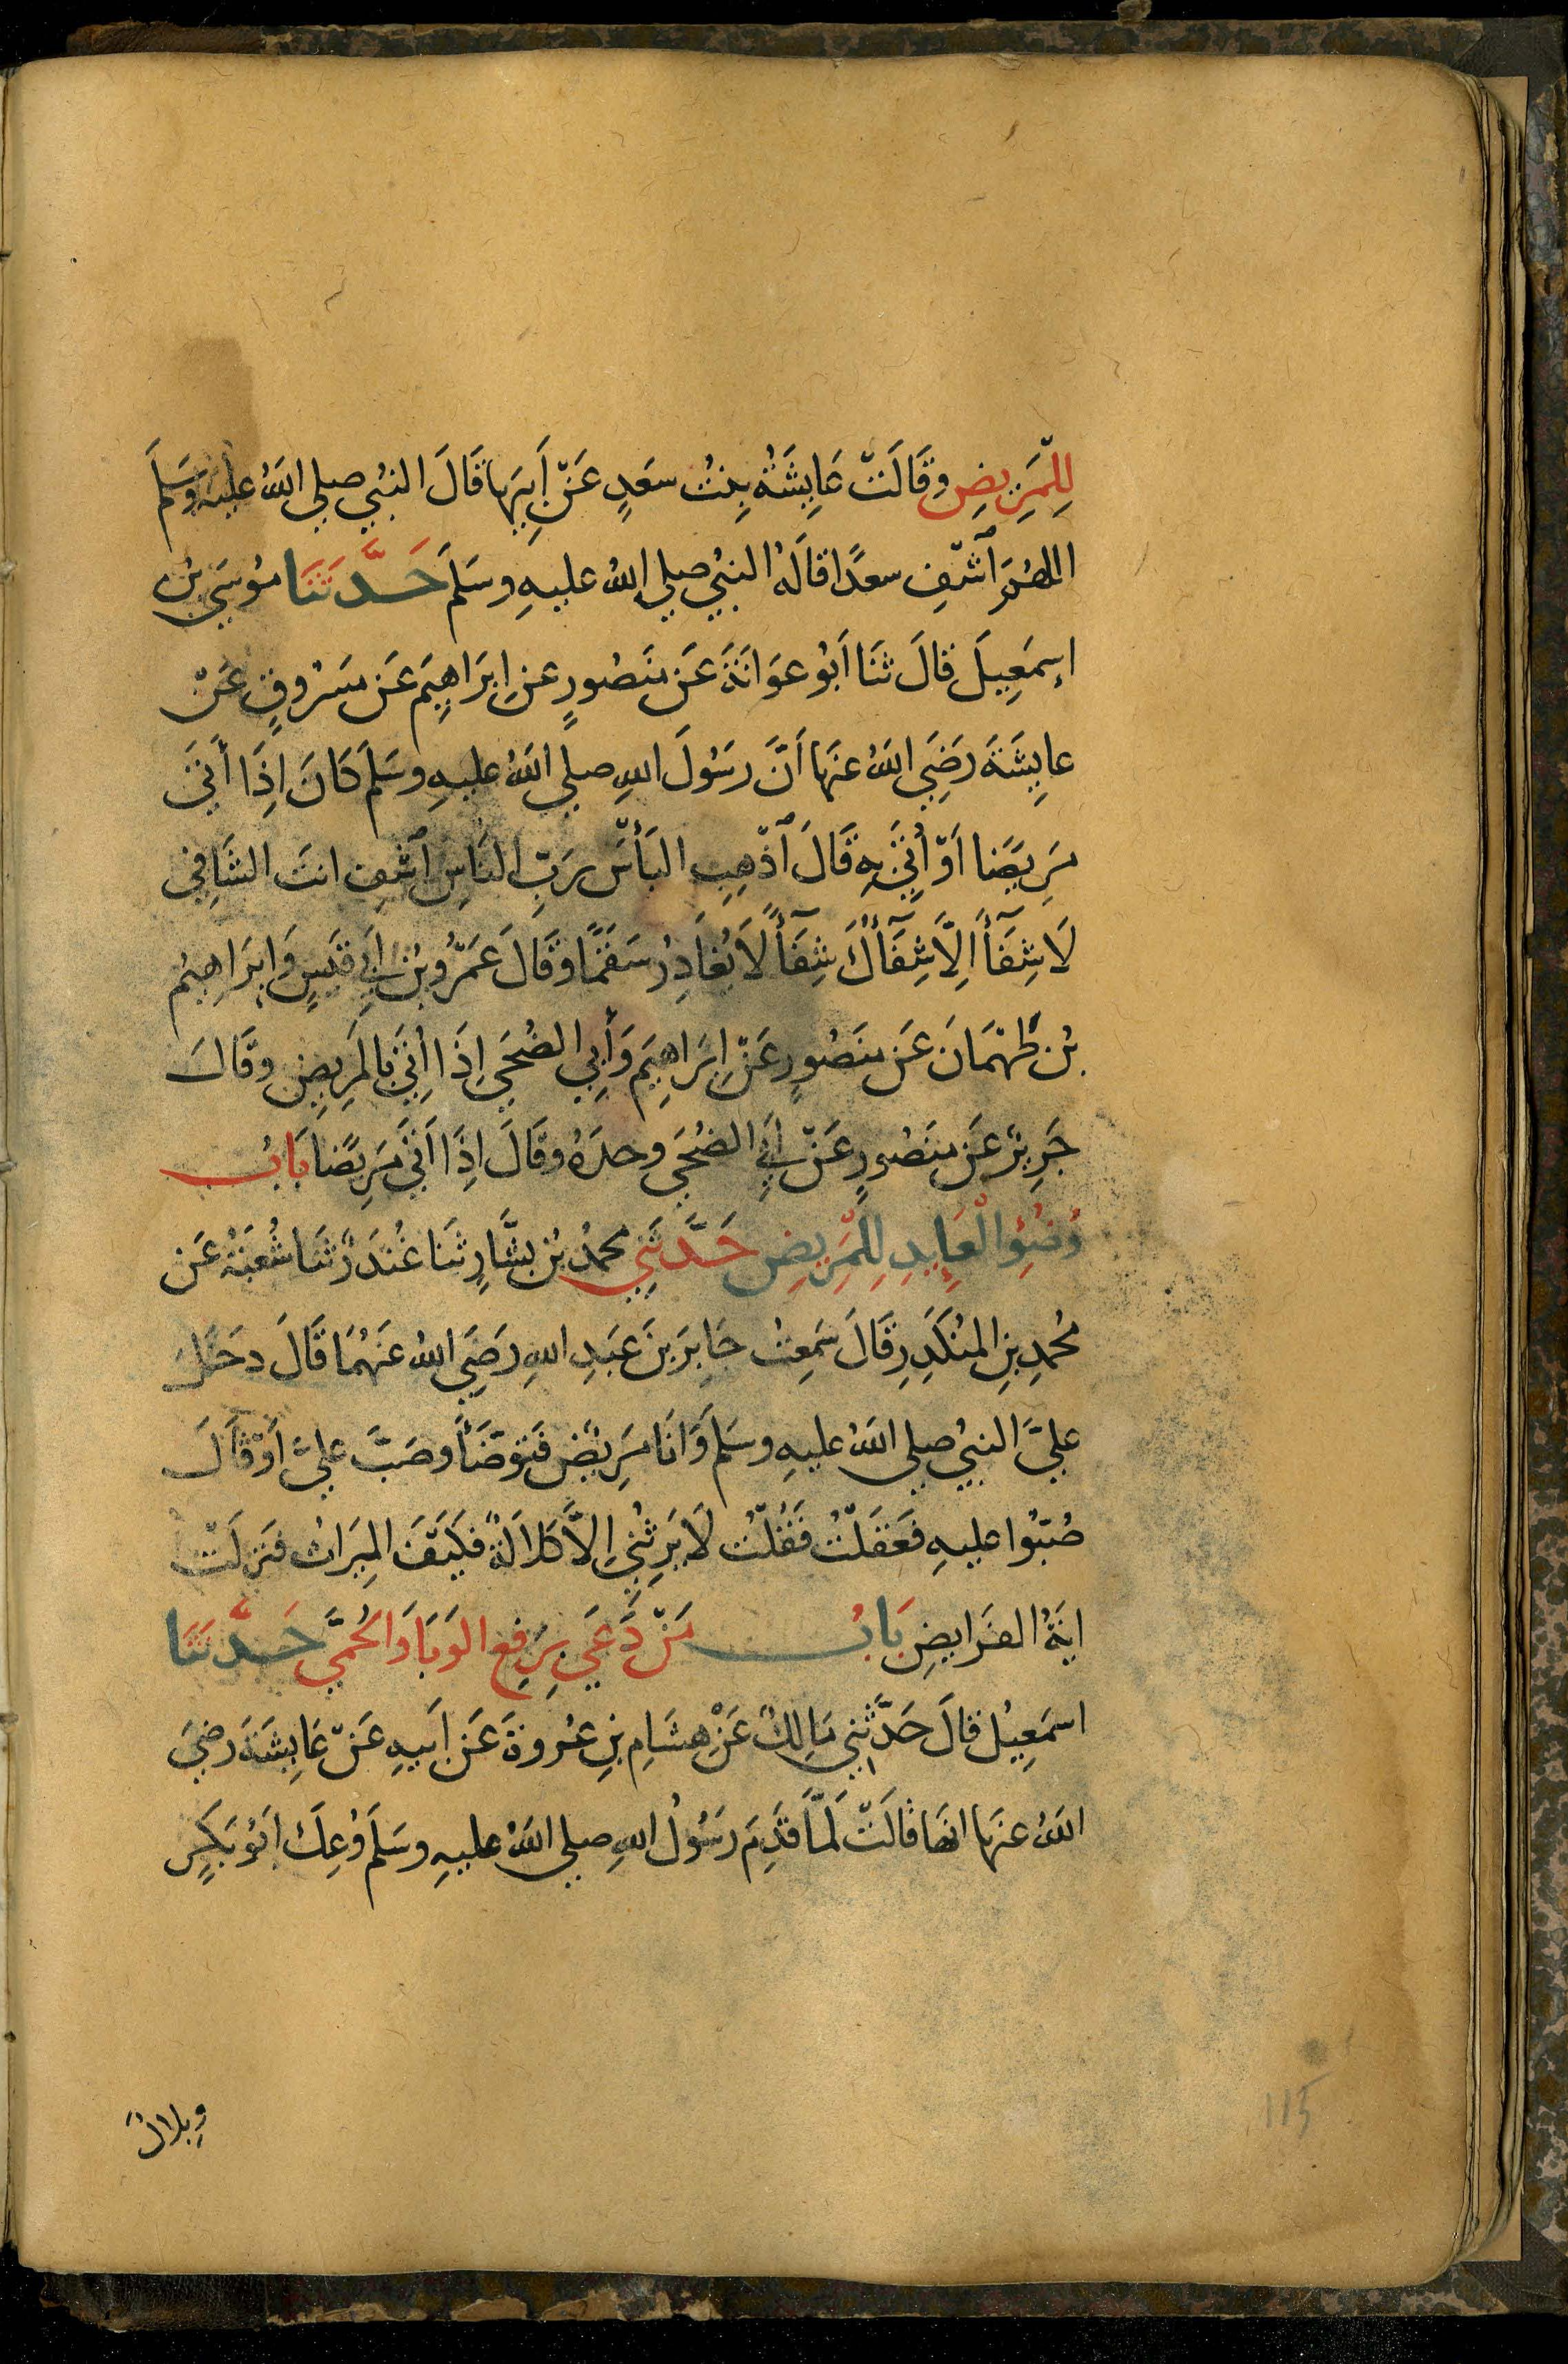 لِلْمَرِيضِ وقَالَتْ عَايِشَةُ بِنْتُ سَعَدٍ عَنْ أَبِيهَا قَالَ النبُي صلي اللهُ عليهِ وَسَلَّم
اللهُمَّ ٱشْفِ سعدًا قالَهُ النبيُ صلي اللهُ عليهِ وسَلَّم حَدَّثَنَا مُوسَي بْن
إِسمَعِيلَ قالَ ثَنَا اَبُو عَوَانَةَ عَن مَنصُورٍ عن اِبرَاهِيَم عَن مَسْرُوقٍ عَنْ
عايِشَةَ رَضِيَ اللهُ عنهَا اَنَّ رسُولَ اللهِ صلي اللهُ عليهِ وسَلَّم كَانَ اِذَا أَتَي
مَرِيضًا اَوْ أُتِيَ بِهِ قَالَ ٱذْهِبِ البَأسَ رَبِّ النَاسِ ٱشْفِ انتَ الشَافِي
لَا شِفَآءَ اِلَّا شِفَآؤُكَ شِفَآءً لَا يُغَادِرُ سَقَمًا وقَالَ عَمْرُو بْنُ اَبِي قَيسٍ وَ اِبرَاهِيمُ
بْن طَهْمَانَ عَن مَنصُورٍ عَنْ اِبرَاهِيَم وَأَبِي الضُحَي اِذَا اُتِيَ بالمَرِيضِ وقَالَ
جَرِيْرٌ عَن مَنصُورٍ عَنْ اَبِي الضُحَي وحدَهُ وقَالَ اِذَا اَتَي مَرِيضًا بَابُ
وُضُوْءِ الْعَايِدِ لِلْمَرِيضِ حَدَّثَنِي محمدُ بْن بشَّارٍ ثَنَا غُنْدَرٌ ثَنَا شُعْبَةُ عَن
مُحمدِ بنِ المُنكَدِرِ قَالَ سَمِعتُ جَابِرَ بنَ عَبَدِ اللهِ رَضِيَ اللهُ عَنهُمَا قَالَ دخَلَ
عليَّ النبيُ صلي اللهُ عليهِ وسَلَّم وَانَا مَرِيضٌ فَتوَضَأَ وصَبَّ عليَّ اَوْ قَالَ
صُبُّوا عليهِ فعَقَلْتُ فَقُلْتُ لَا يَرِثُنِي اِلاَّ كَلَالَةٌ فكَيْفَ المِيَراثُ فنَزلَتْ
ايَةُ الفَرَايضِ بَابُ مَنْ دَعَي بِرَفِع الوَبَا وَالحُمَّي حَدَّثَنَا
اسمَعِيلُ قالَ حَدَّثَنِي مَالِكٌ عَنْ هشَامِ بنِ عُروةَ عَن اَبيهِ عَنْ عَايِشَةَ رضيَ
اللهُ عنهَا انهَا قالَتْ لَمَّا قَدِمَ رسُولُ اللهِ صلي اللهُ عليهِ وسَلَّم وُعِكَ ابُو بَكرٍ
وبِلالٌ
115